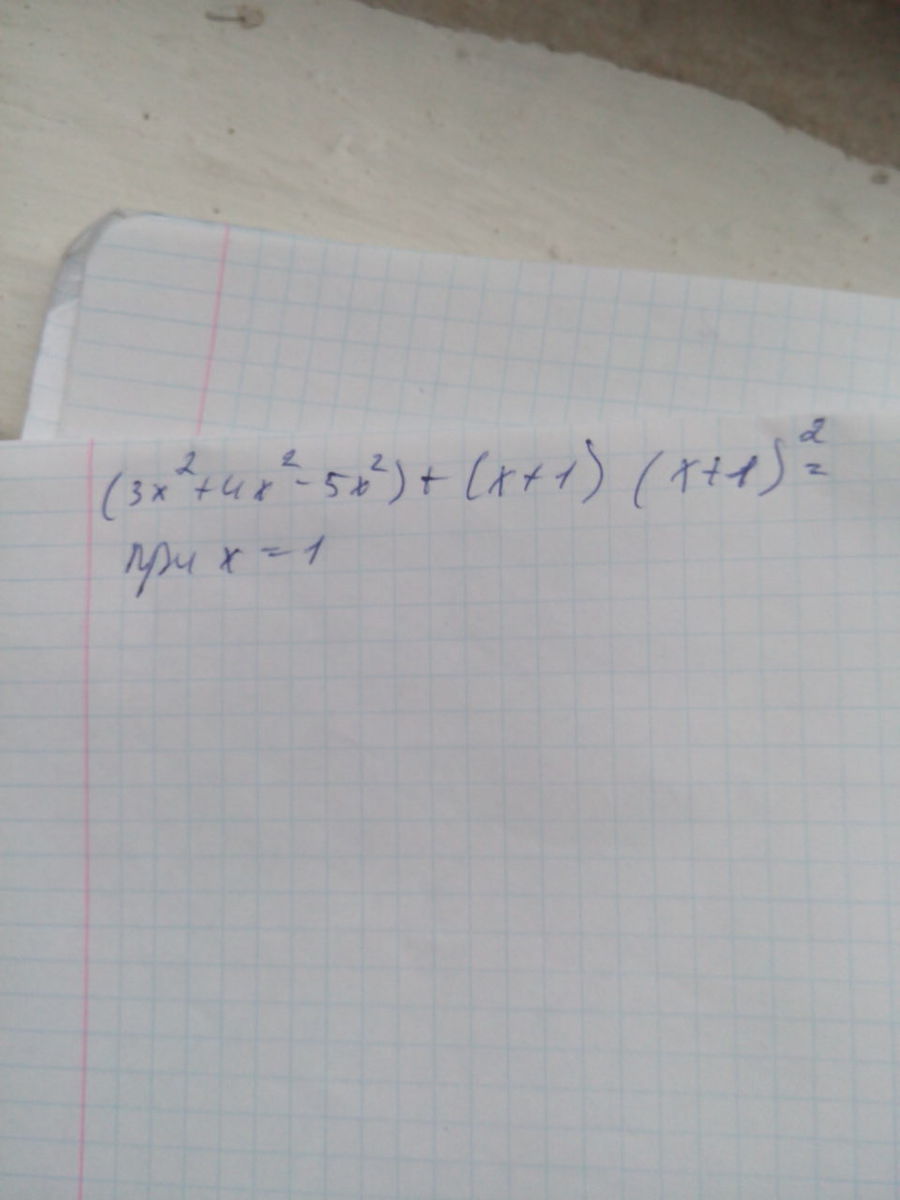 (3x²+4x²-5x²)+(x+1) (x+1)²=
при x=1